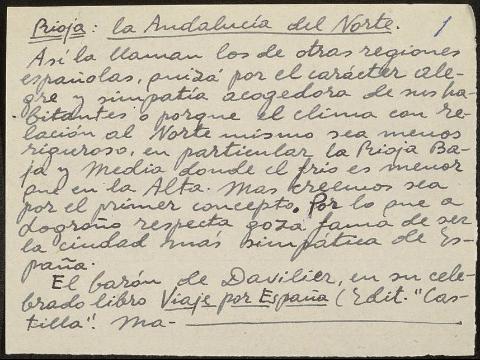 Rioja: la Andalucía del Norte. 1
Así la llaman los de otras regiones
españolas, quizá por el carácter ale-
gre y simpatía acogedora de sus ha-
bitantes o porque el clima con re-
lación al Norte mismo sea menos
riguroso, en particular la Rioja Ba-
ja y Media donde el frío es menor
que en la Alta. Mas creemos sea
por el primer concepto. Por lo que a
Logroño respecta goza fama de ser
la ciudad más simpática de Es-
paña.
El barón de Davilier, en su cele-
brado libro Viaje por España (Edit. "Cas-
tilla". Ma-